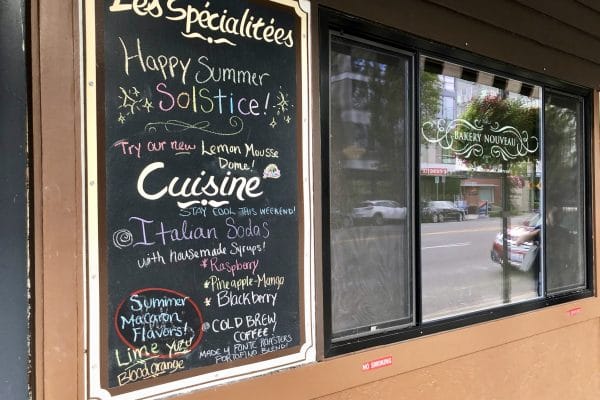 Les Spécialitées
Happy Summer
Solstice!
Try our new Lemon Mousse
Dome!
Cuisine
STAY COOL THIS WEEKEND!
Italian Sodas
with housemade syrups!
*Raspberry
*Pineapple-Mango
*Blackberry
Summer
Macaron
Flavors!
Lime Yuzu
Blood orange
COLD BREW
COFFEE!
MADE W/ FONTE ROASTERS
PORTOFINO BLEND!
BAKERY NOUVEAU
NO SMOKING